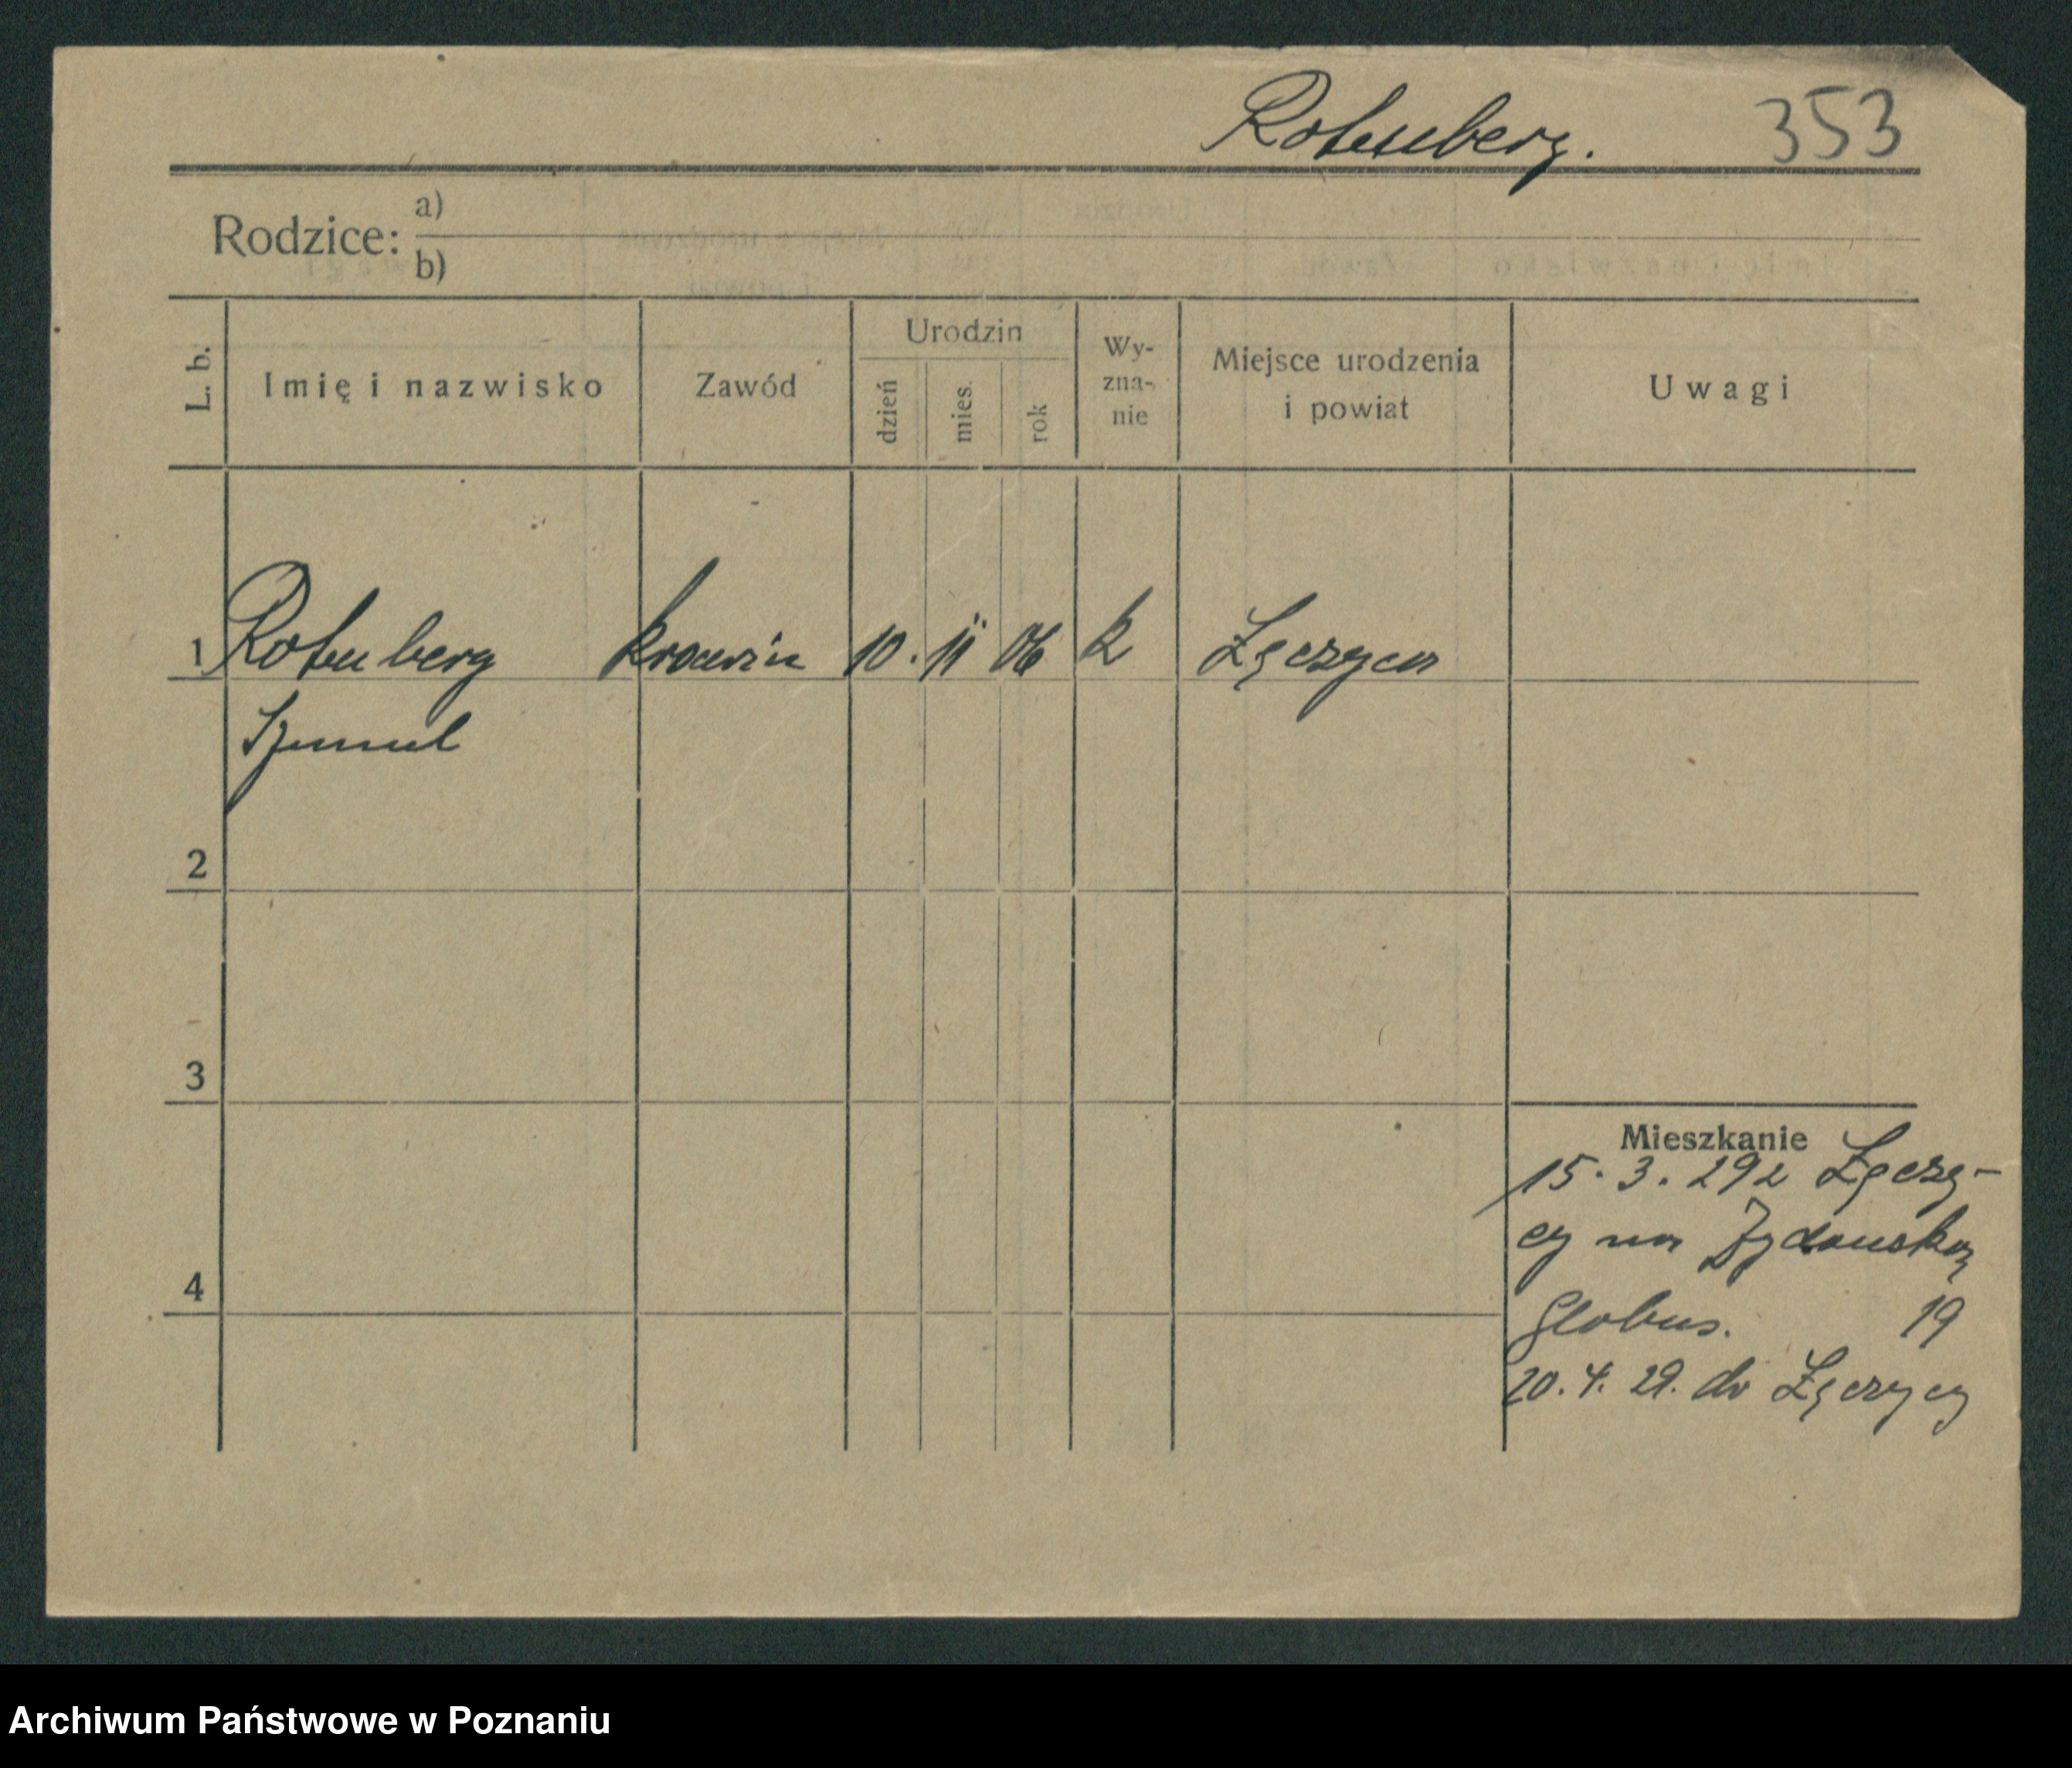 Rotenberg. 353
Rodzice: a)
b)
L. b. Imię i nazwisko Zawód Urodzin dzień mies. rok Wy-zna-nie Miejsce urodzenia i powiat Uwagi
1 Rotenberg krawiec 10. 11 06 k Łęczyca
Szmul
2
3
4
Mieszkanie
15. 3. 29 z Łęczy-
cy na Żydowską
Globus. 19
20. 4. 29. do Łęczycy
Archiwum Państwowe w Poznaniu